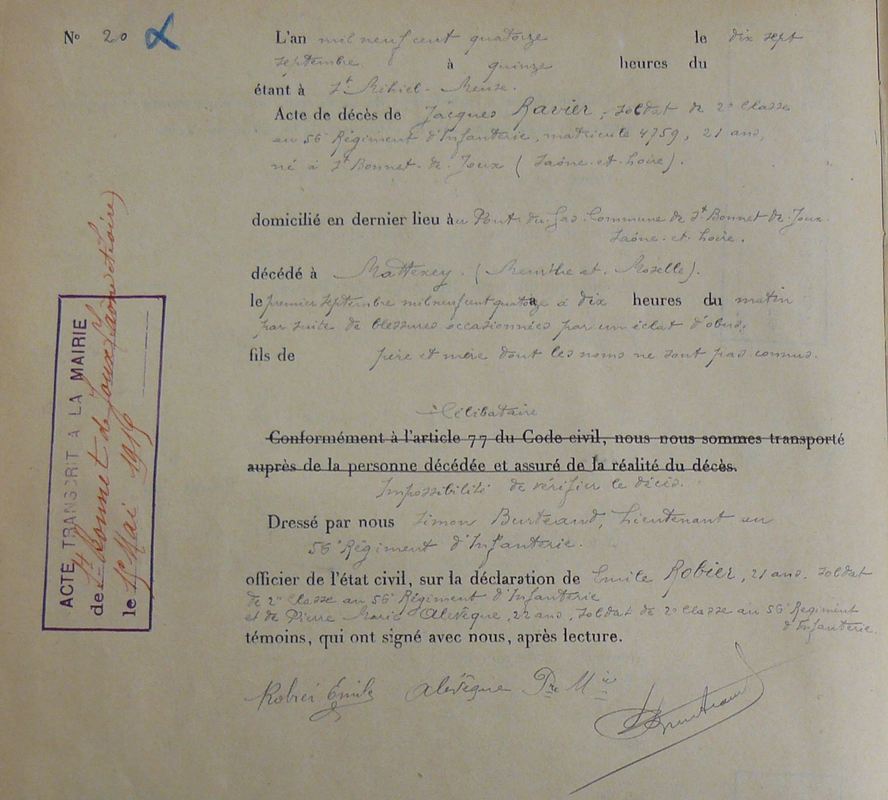 N° 20
L'an mil neuf cent quatorze le dix sept
septembre à quinze heures du
étant à St Mihiel - Meuse.
Acte de décès de Jacques Ravier, soldat de 2e classe
au 56e Régiment d'Infanterie, matricule 4759, 21 ans,
né à St Bonnet-de-Joux (Saône-et-Loire).
domicilié en dernier lieu à au Pont du Gas. Commune de St Bonnet-de-Joux
Saône-et-Loire.
décédé à Mattexey. (Meurthe et Moselle).
le premier septembre mil neuf cent quatorze à dix heures du matin
par suite de blessures occasionnées par un éclat d'obus.
fils de père et mère dont les noms ne sont pas connus.
Célibataire
Conformément à l'article 77 du Code civil, nous nous sommes transporté
auprès de la personne décédée et assuré de la réalité du décès.
Impossibilité de vérifier le décès.
Dressé par nous Simon Burteaud, Lieutenant au
56e Régiment d'Infanterie.
officier de l'état civil, sur la déclaration de Emile Robier, 21 ans. soldat
de 2e Classe au 56e Régiment d'Infanterie
et de Pierre Marie Alevêque, 22 ans, soldat de 2e Classe au 56e Régiment
d'Infanterie.
témoins, qui ont signé avec nous, après lecture.
Emile Alevêque Pre Mie
ACTE TRANSCRIT A LA MAIRIE
de St Bonnet de Joux (Saône et Loire)
le Mai